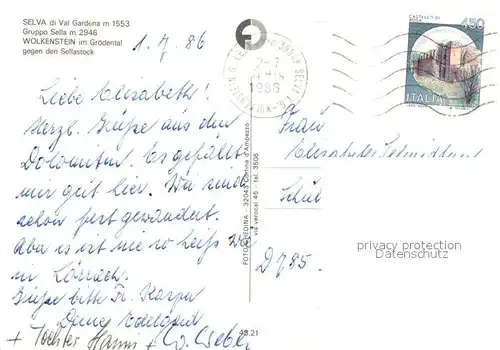 SELVA di Val Gardena m 1553
Gruppo Sella m 2946
WOLKENSTEIN im Grödental
gegen den Sellastock
1. 7. 86
Liebe Elisabeth!
Herzl. Grüße aus den
Dolomiten. Es gefällt
mir gut hier. Wir sind
schon fest gewandert.
Aba es ist nie so heiß wie
in Lörrach.
Grüße bitte Fr. Karpa
Deine Edelgard
+ Tochter Hanni +
FOTO GHEDINA - 32043 Cortina d'Ampezzo
via verocai 45 - tel. 3506
43.21
1986
CASTELLO DI
450
ITALIA
Frau
Elisabeth
Schul
D 785.
privacy protection
Datenschutz